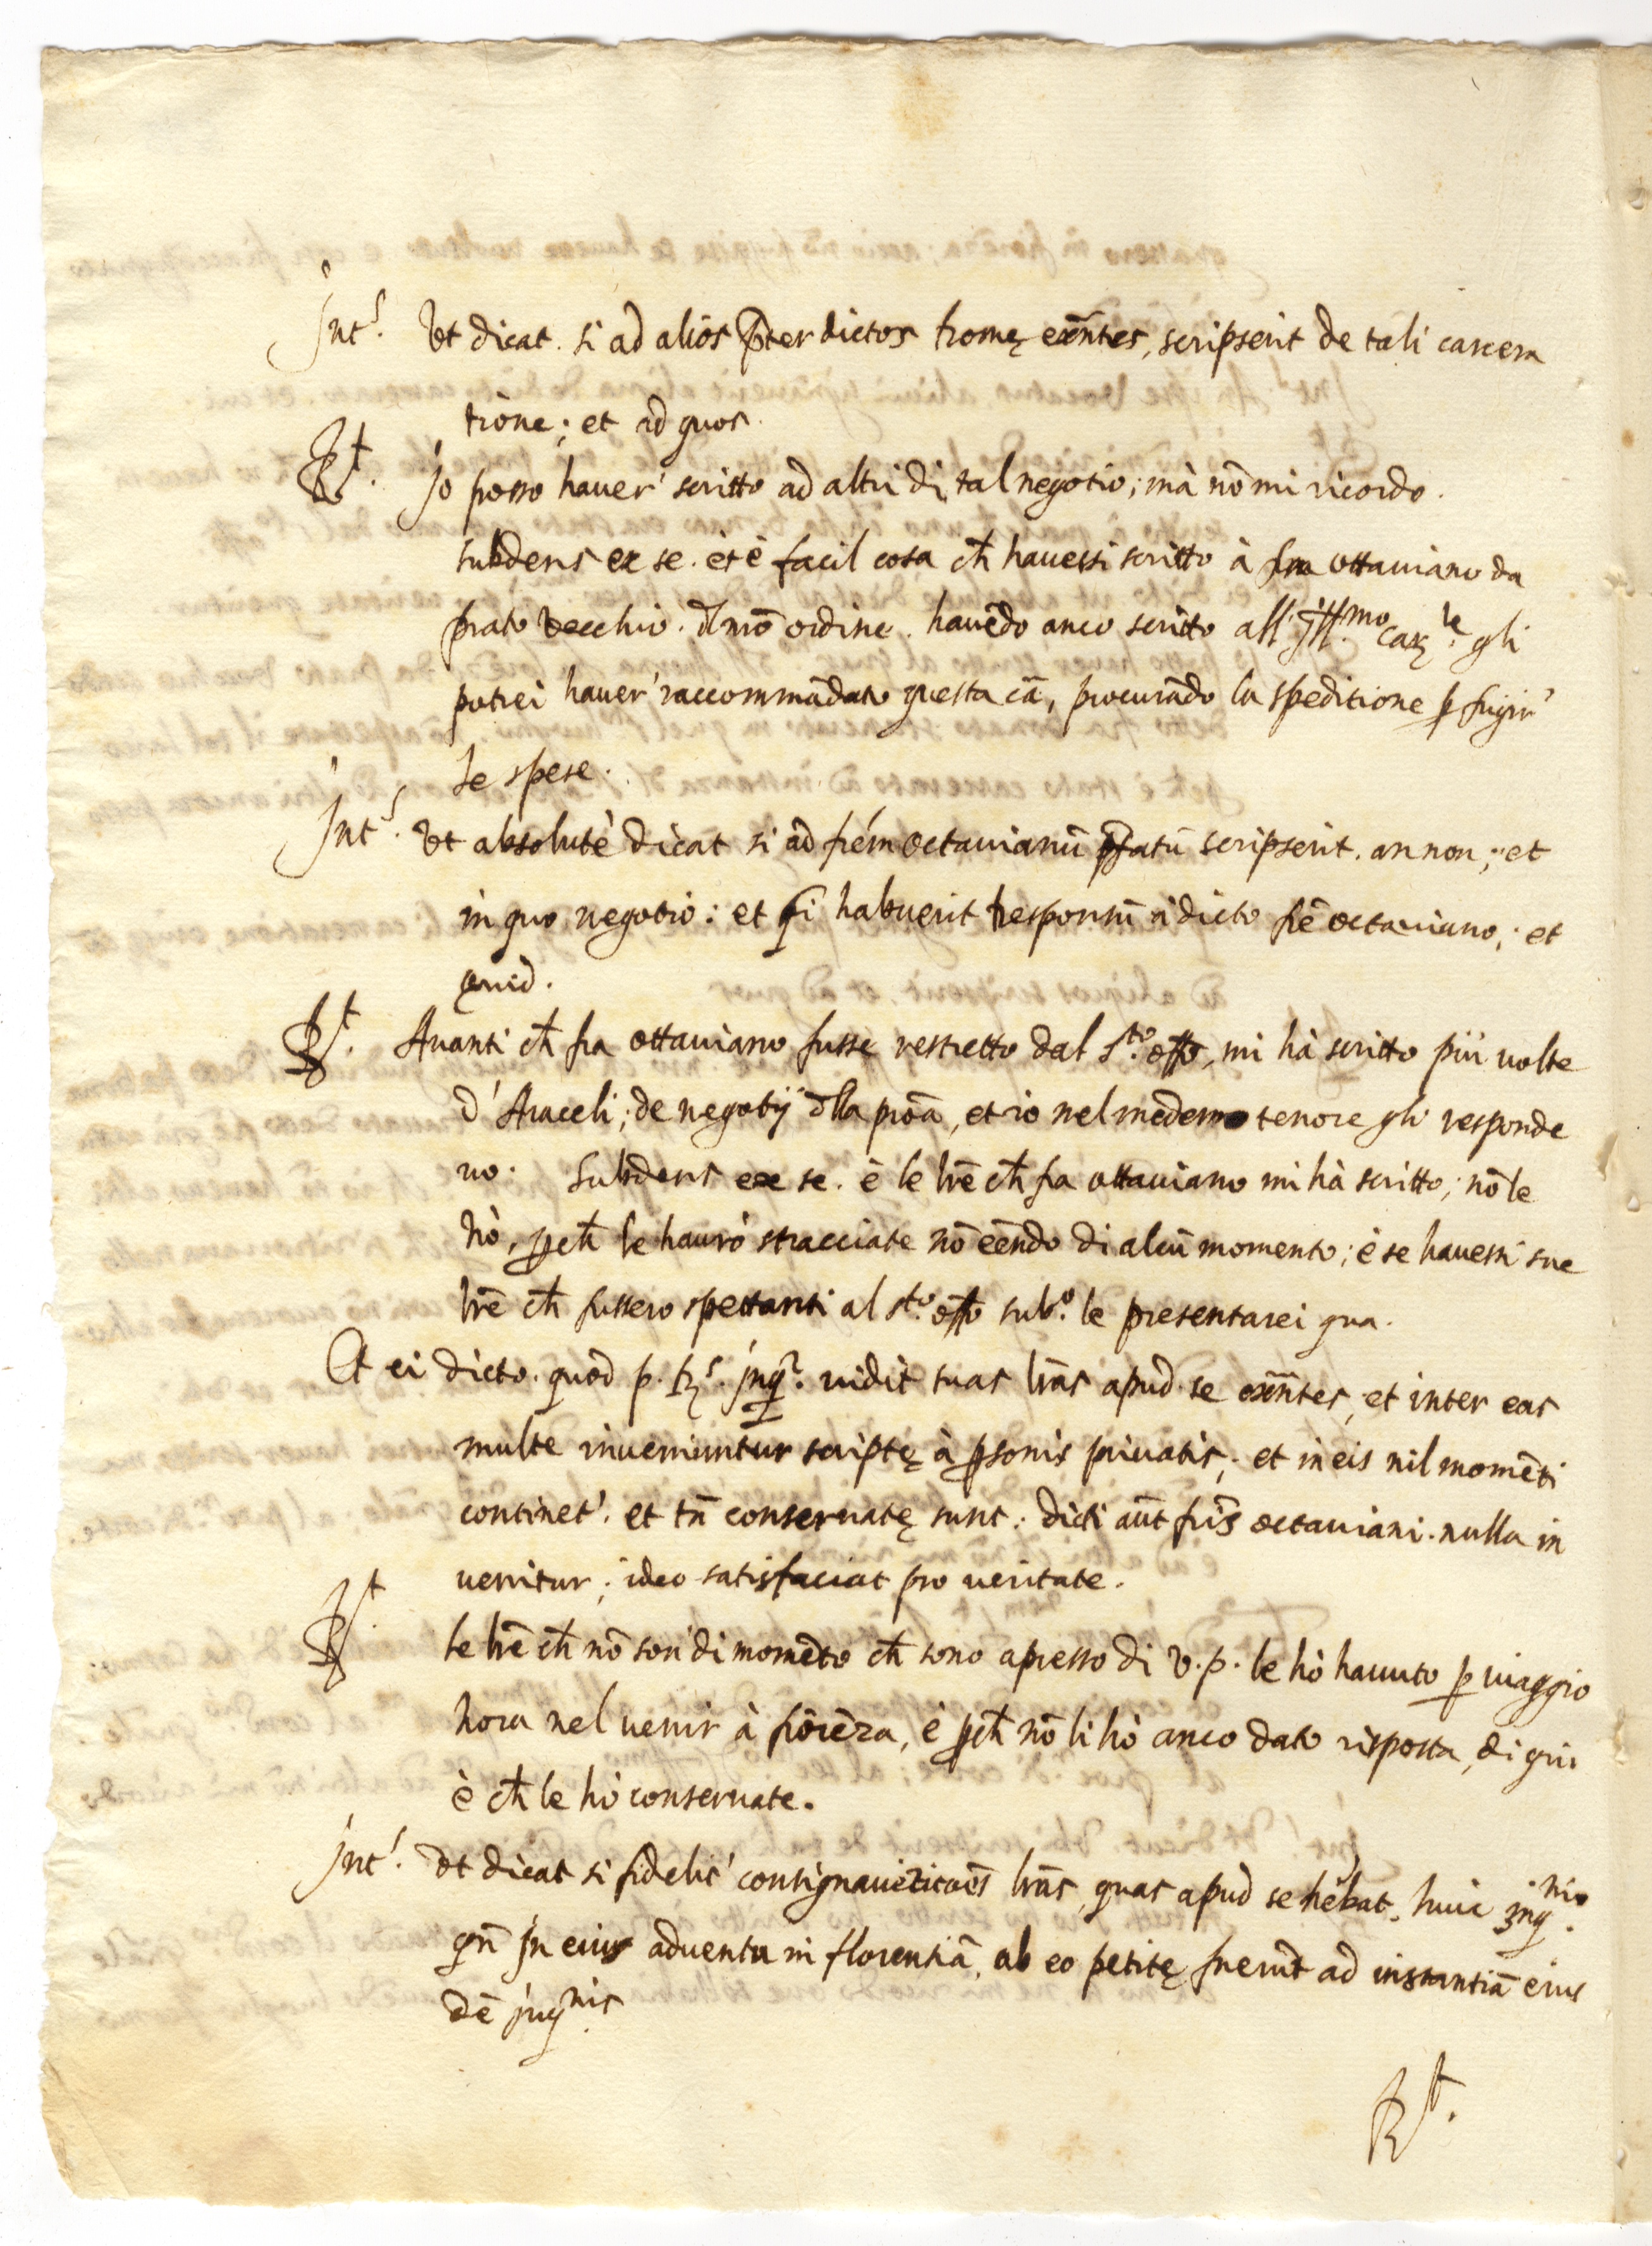 Int.s Ut dicat. si ad alios p̄ter dictos Romę exñtes, scripserit de tali carcera
tione; et ad quos.
R.t Jo posso hauer' scritto ad altri di tal negotio; mà nō mi ricordo.
subdens ex se. et è facil cosa ch̄ hauessi scritto à fra ottauiano da
prato Vecchio. d'l nrō ordine. hauēdo anco scritto all' Ill.mo Car.le gli
potrei hauer' raccommādato questa cā, procurādo la speditione p̱ fugir'
le spese.
Int.s Ut absolutè dicat si ad frēm octauianū p̄fatū scripserit. an non; et
in quo negotio: et si habuerit responsū à dicto frē octauiano; et
quid.
R.t Auanti ch̄ fra ottauiano fusse restretto dal s.to offo, mi hà scritto più uolte
d'Araceli; de negotij d'lla proā, et io nel medemo tenore gli responde
uo. Subdens ex se. è le lrē ch̄ fra ottauiano mi hà scritto; nō le
hò, p̱ch̄ le hauró stracciate nō eēndo di alcū momento; è se hauessi sue
lrē ch̄ fussero spettanti al s.to offo sub.o le presentarei qua.
Et ei dicto. quod p. R.s inq.r uidit suas lrās apud se exñtes, et inter eas
multe inueniuntur scriptę à p̱sonis priuatis; et in eis nil momēti
continet'. et tn̄ conseruatę sunt: dicti aūt fris̄ octauiani. nulla in
uenitur; ideo satisfaciat pro ueritate.
R.t le lrē ch̄ nō son' di momēto ch̄ sono apresso di V.P. le hò hauuto p̱ uiaggio
hora nel uenir à fiorēza, è p̱ch̄ nō li hò anco dato risposta, di qui
è ch̄ le hò conseruate.
Int.s Ut dicat si fidelit' consignauerit oēs lrās, quas apud se hēbat, huic inq.ni
qn̄ in eius aduentu in florentiā, ab eo petitę fuerūt ad instantiā eius
dē inq.nis
R.t